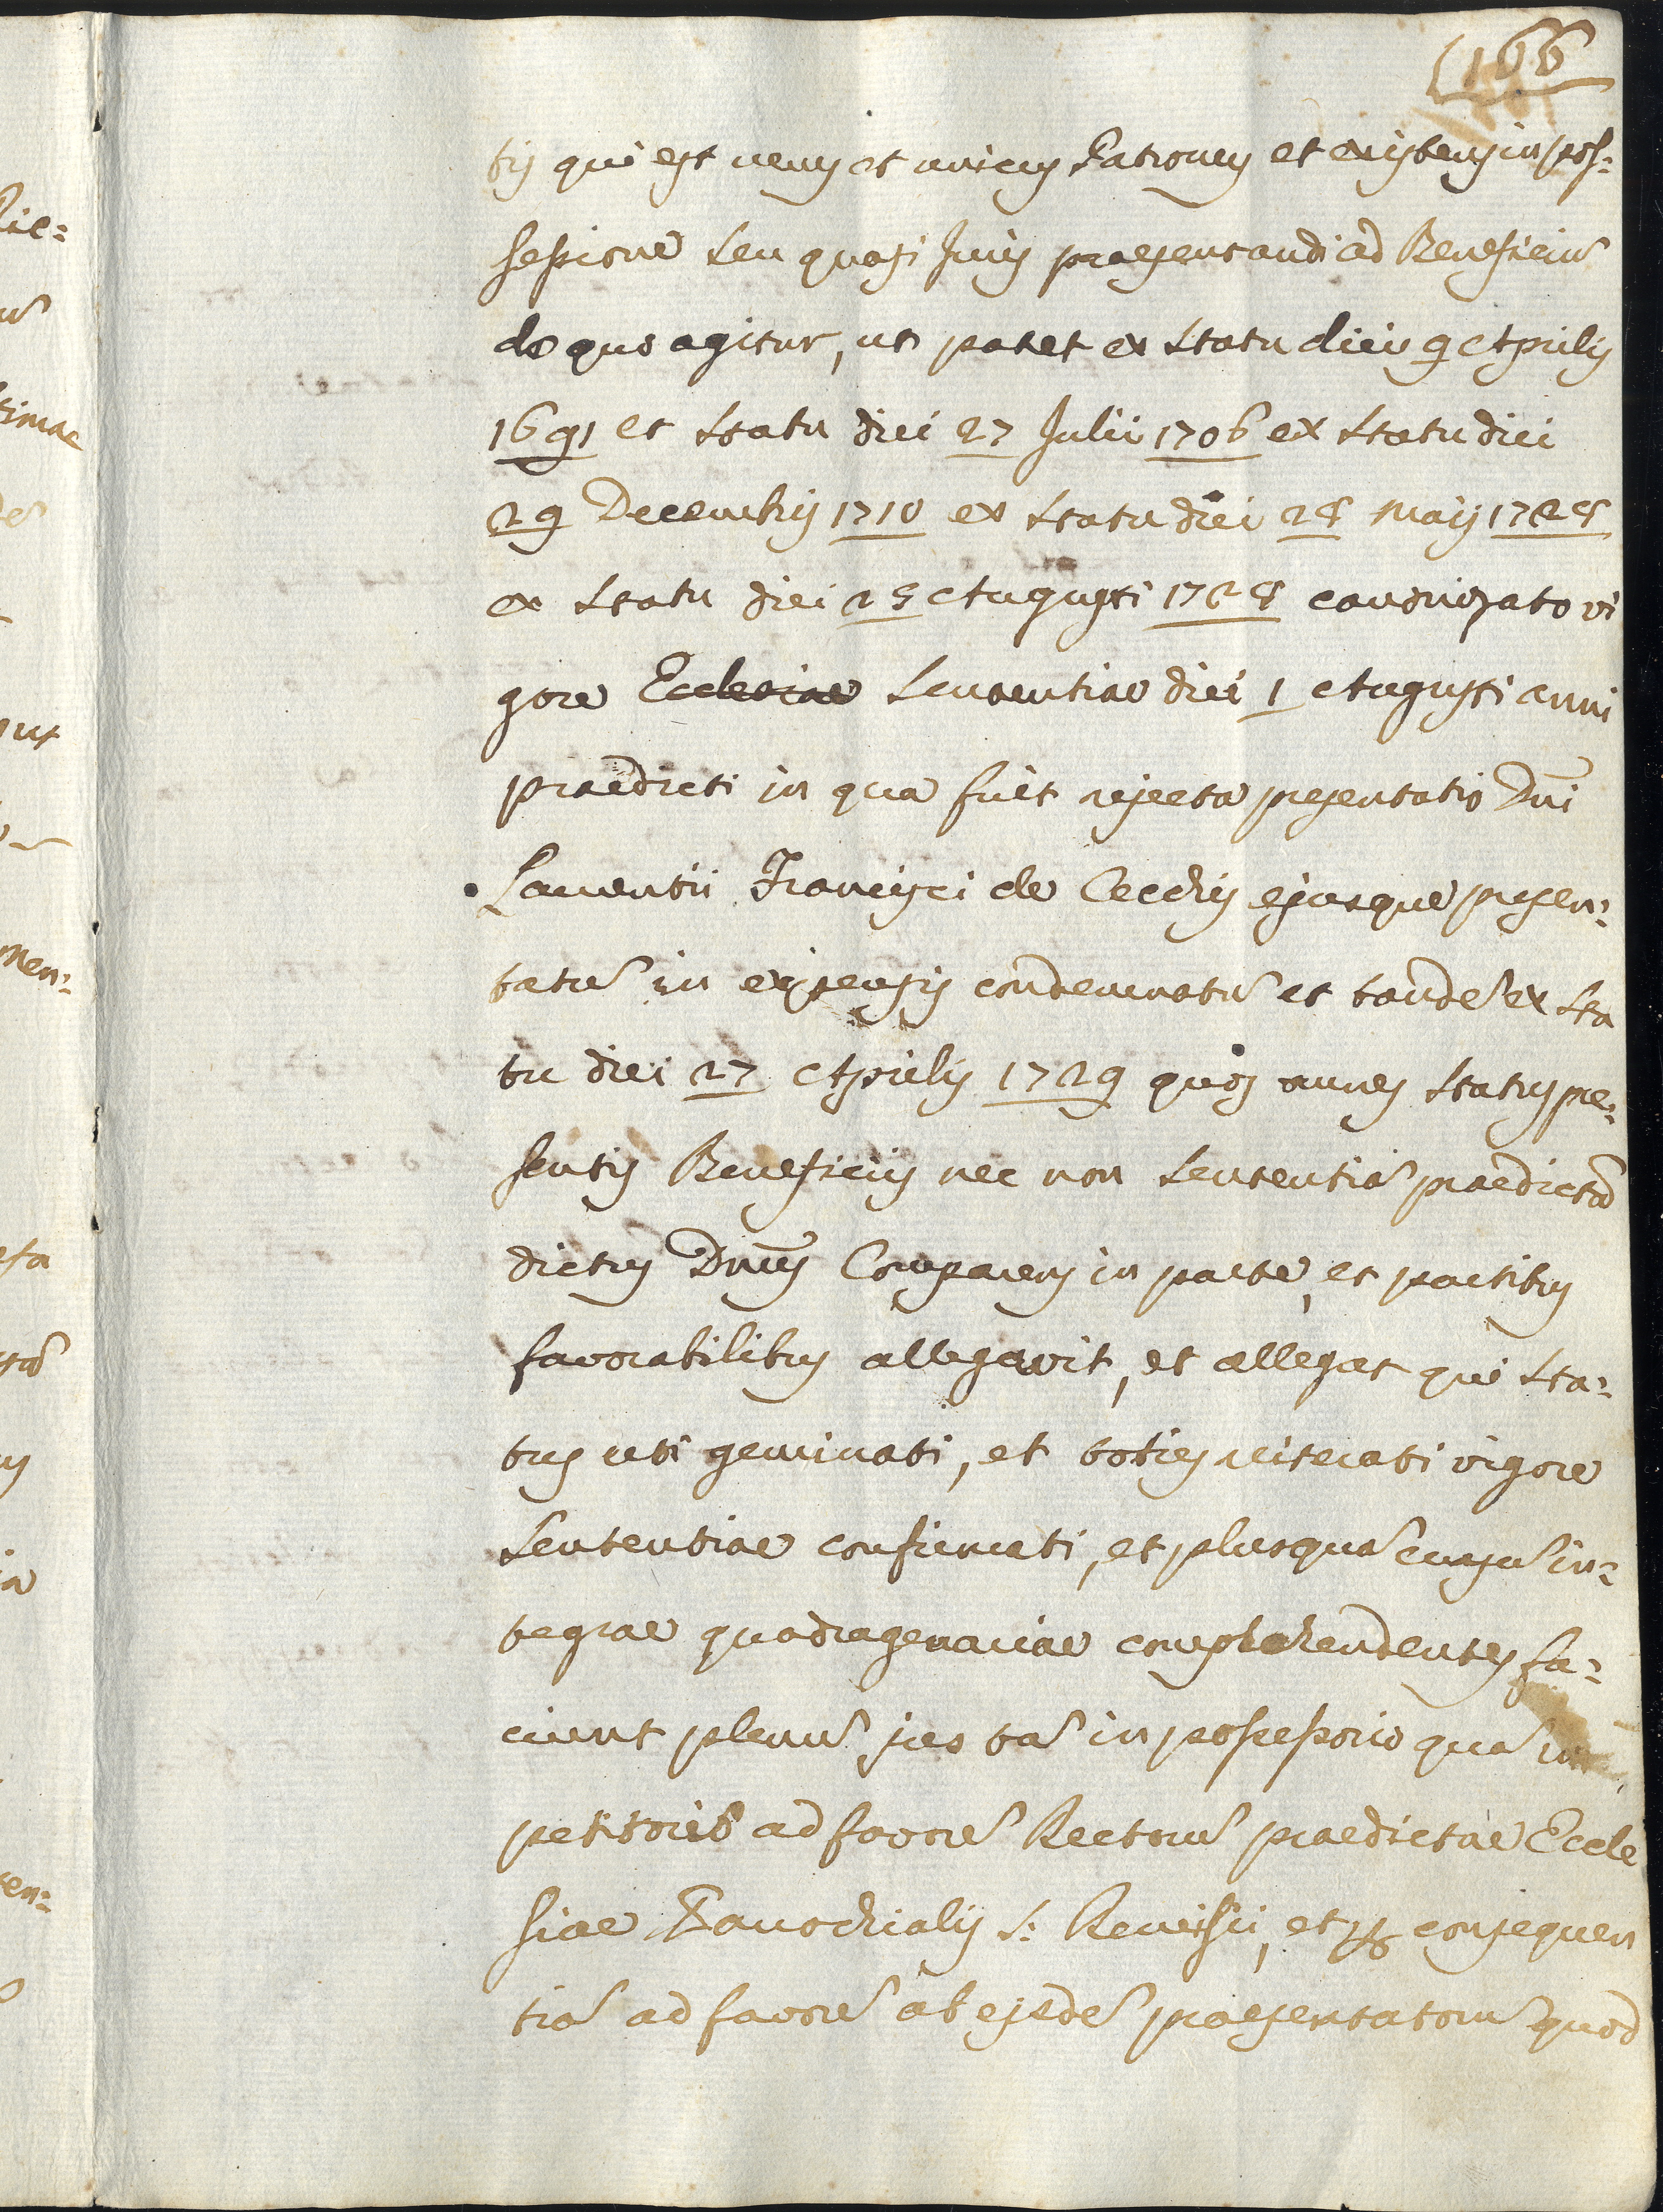 166
tis qui est verus et unicus Patronus et existens in pos:
sessione seu quasi Juris praesentandi ad Beneficiũ
de quo agitur, ut patet ex statu diei 9 Aprilis
1691 et statu diei 27 Julii 1706 ex statu diei
29 Decembris 1710 ex statu diei 28 Maij 1728
ex statu diei 25 Augusti 1728 canonizato vi
gore Ecclesiae Sententiae diei 1 Augusti anni
praedicti in qua fuit rejecta presentatio Dni
Laurentii Francisci de Cecchis ejusque presen:
tatũ in expensis condemnatũ et tandẽ ex sta
tu diei 27 Aprilis 1729 quos omnes status pre:
sentis Beneficiis nec non sententiã praedictã
dictus Dnus Comparens in parte, et partibus
favorabilibus allegavit, et allegat qui sta:
tus uti geminati, et toties reiterati vigore
sententiae confirmati, et plusquã cursũ in:
tegrae quadragenariae comprehendentes fa:
ciunt plenũ jus tã in possessorio quã in
petitorio ad favorẽ Rectorũ praedictae Eccle
siae Parochialis S: Remisii, et per consequen
tiã ad favorẽ ab eisdẽ praesentatorũ quod
Rie:
timac
men:
sta
sen: